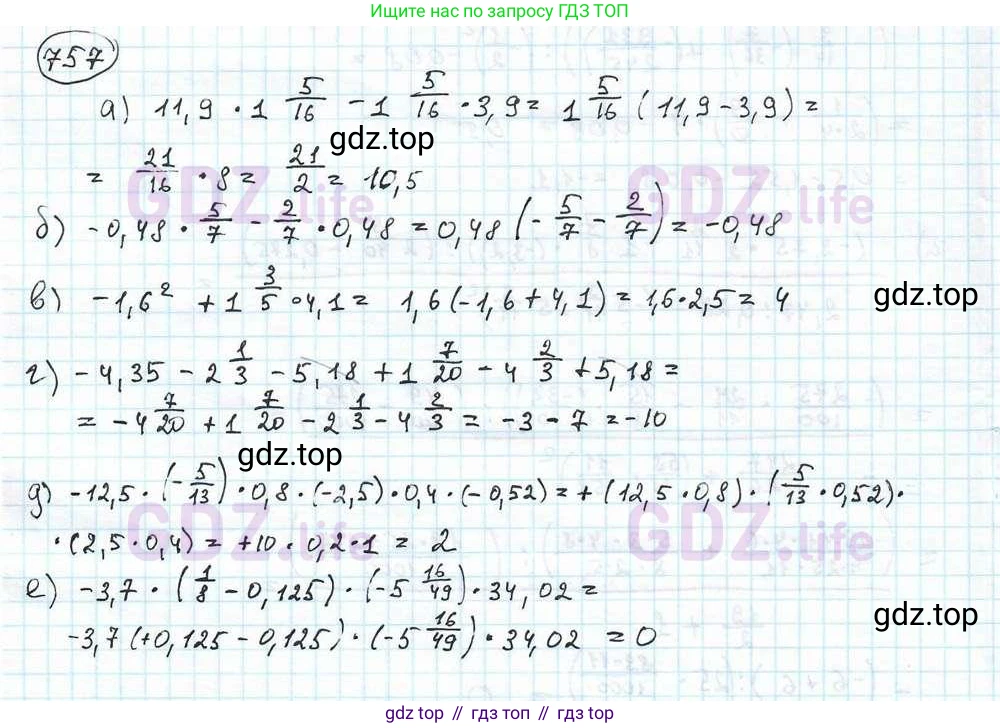 Ищите по запросу ГДЗ ТОП
757
а) 11,9 · 1 5/16 - 1 5/16 · 3,9 = 1 5/16 (11,9 - 3,9) =
gdz.top
= 21/16 · 8 = 21/2 = 10,5
GDZ.life GDZ.life
б) -0,48 · 5/7 - 2/7 · 0,48 = 0,48 (- 5/7 - 2/7) = -0,48
в) -1,6² + 1 3/5 · 4,1 = 1,6 (-1,6 + 4,1) = 1,6 · 2,5 = 4
gdz.top
г) -4,35 - 2 1/3 - 5,18 + 1 7/20 - 4 2/3 + 5,18 =
= -4 7/20 + 1 7/20 - 2 1/3 - 4 2/3 = -3 - 7 = -10
gdz.top
д) -12,5 · (- 5/13) · 0,8 · (-2,5) · 0,4 · (-0,52) = + (12,5 · 0,8) · (5/13 · 0,52) ·
GDZ.life GDZ.life
· (2,5 · 0,4) = +10 · 0,2 · 1 = 2
е) -3,7 · (1/8 - 0,125) · (-5 16/49) · 34,02 =
gdz.top
-3,7 (+0,125 - 0,125) · (-5 16/49) · 34,02 = 0
gdz.top // гдз топ // gdz.top